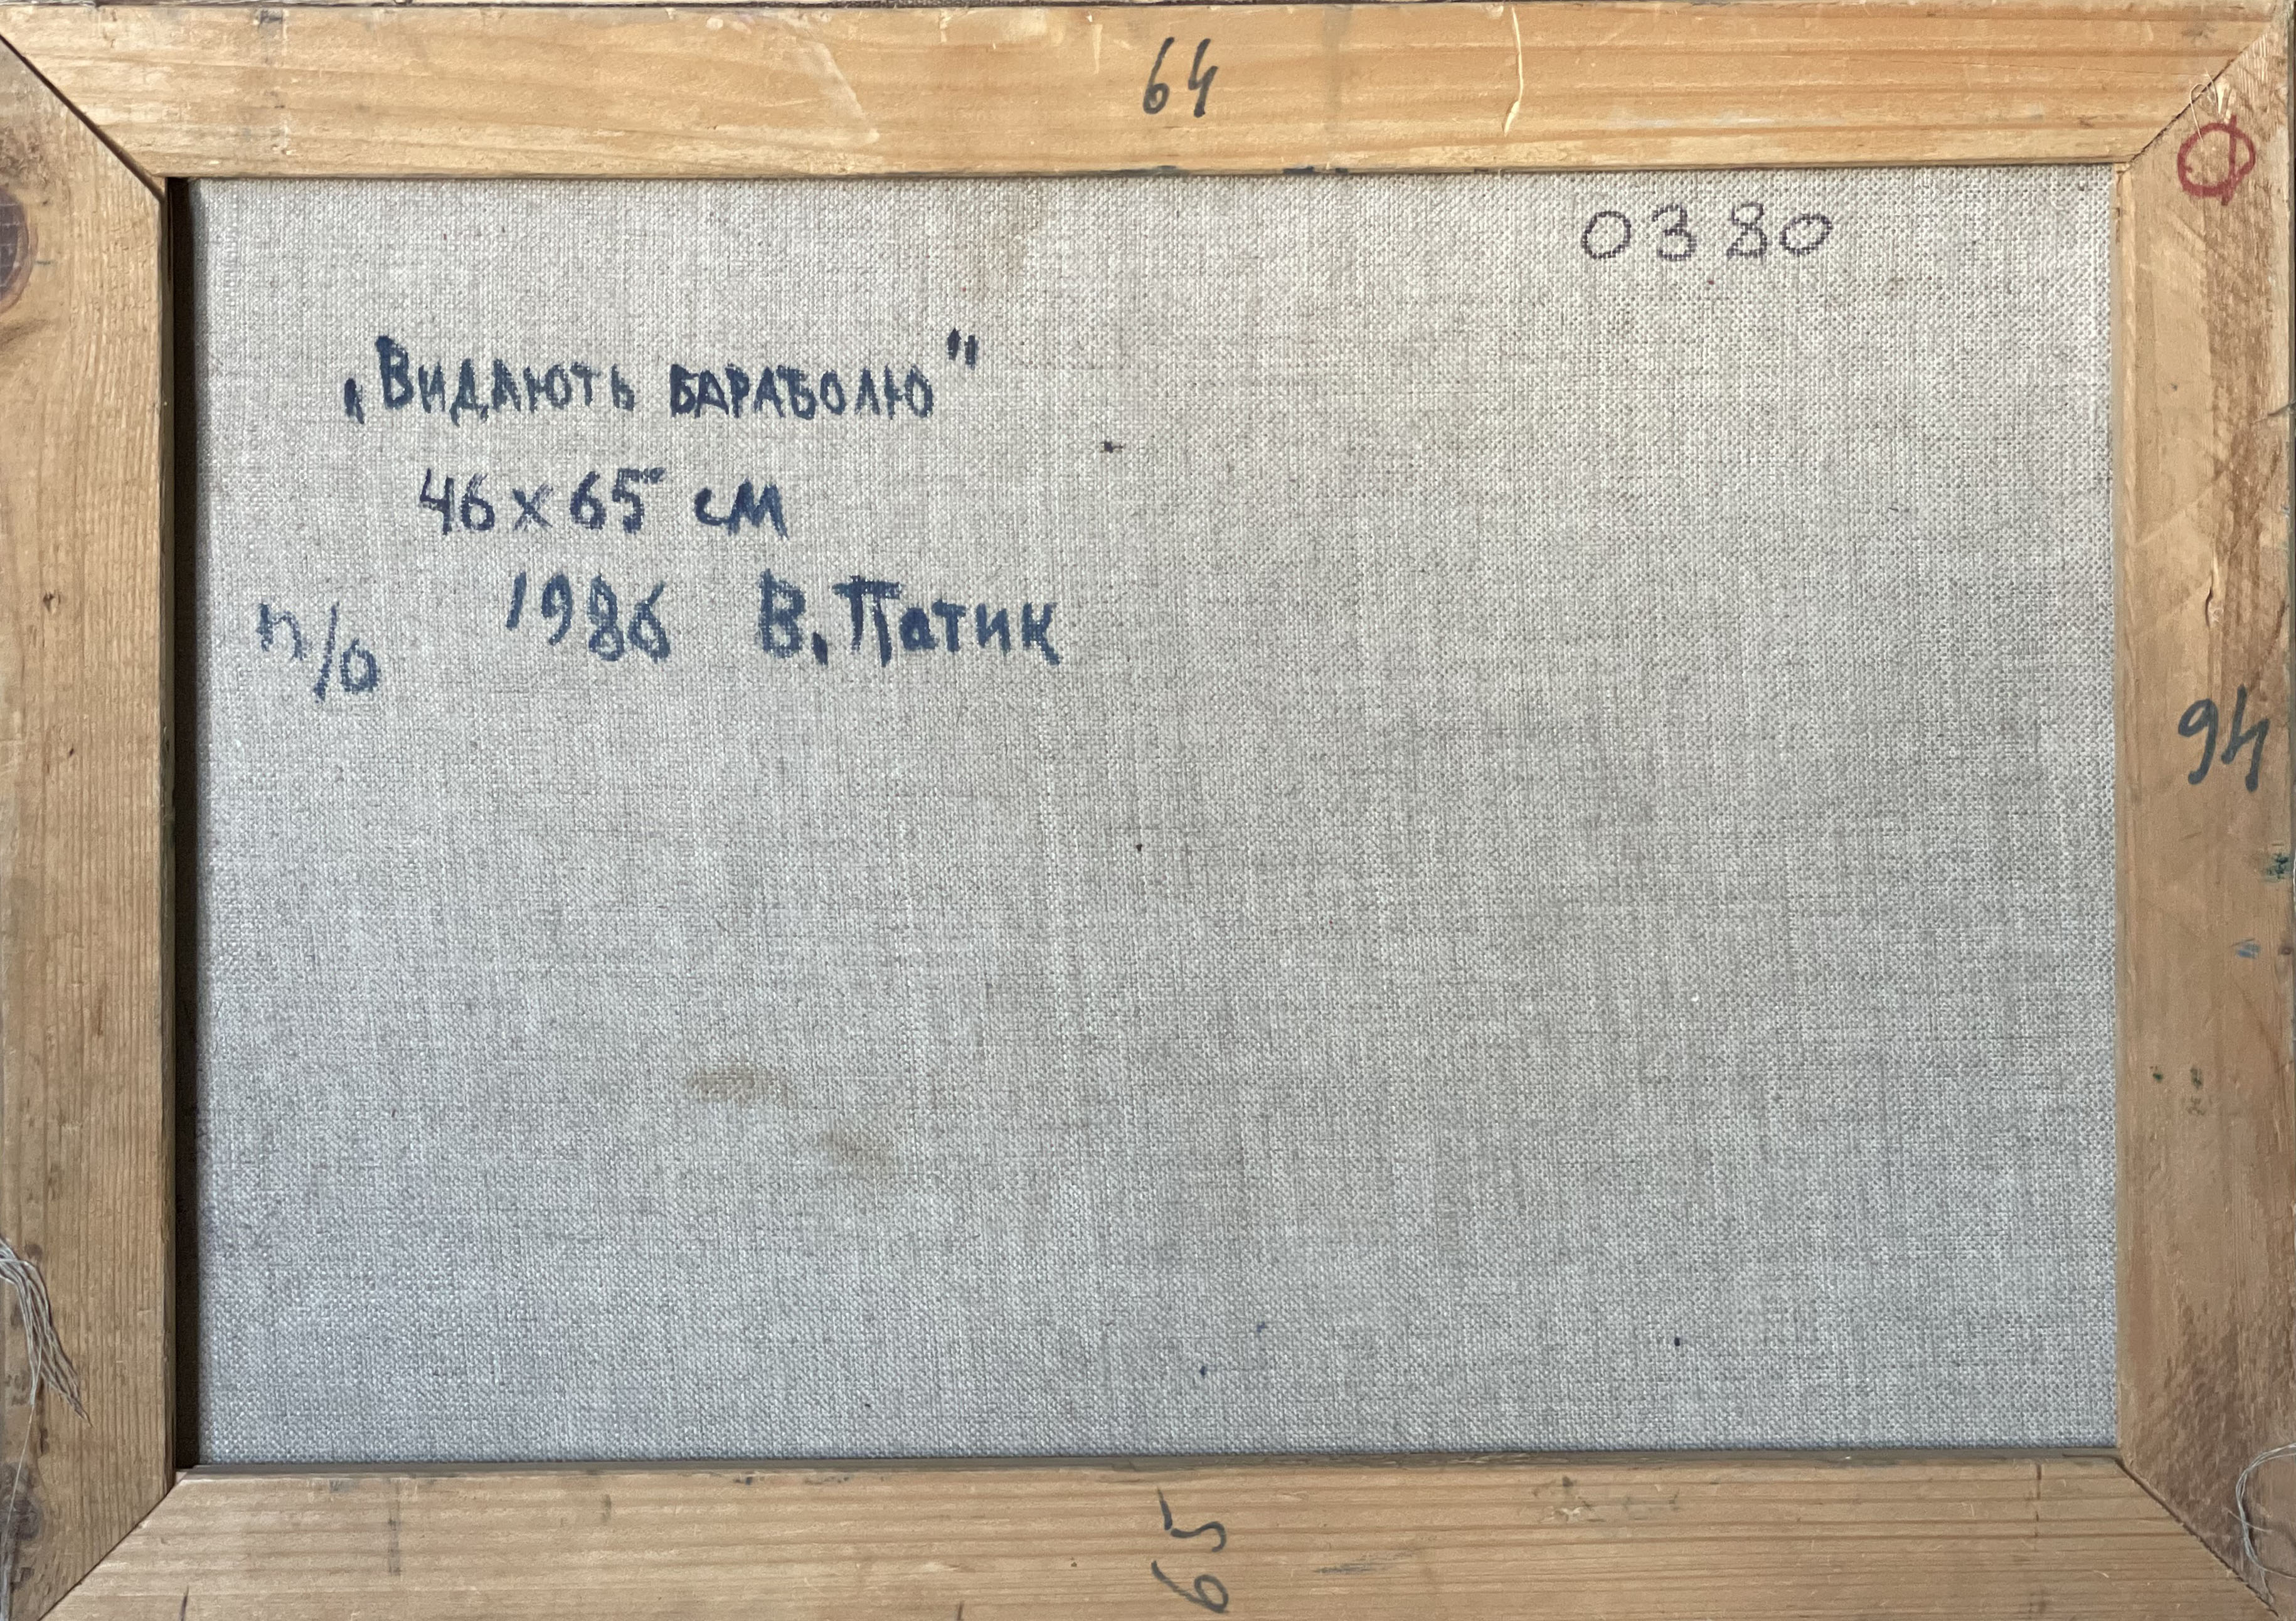 64
0380
„Видають бараболю"
46х65 см
1986 В. Патик
п/о
46
65